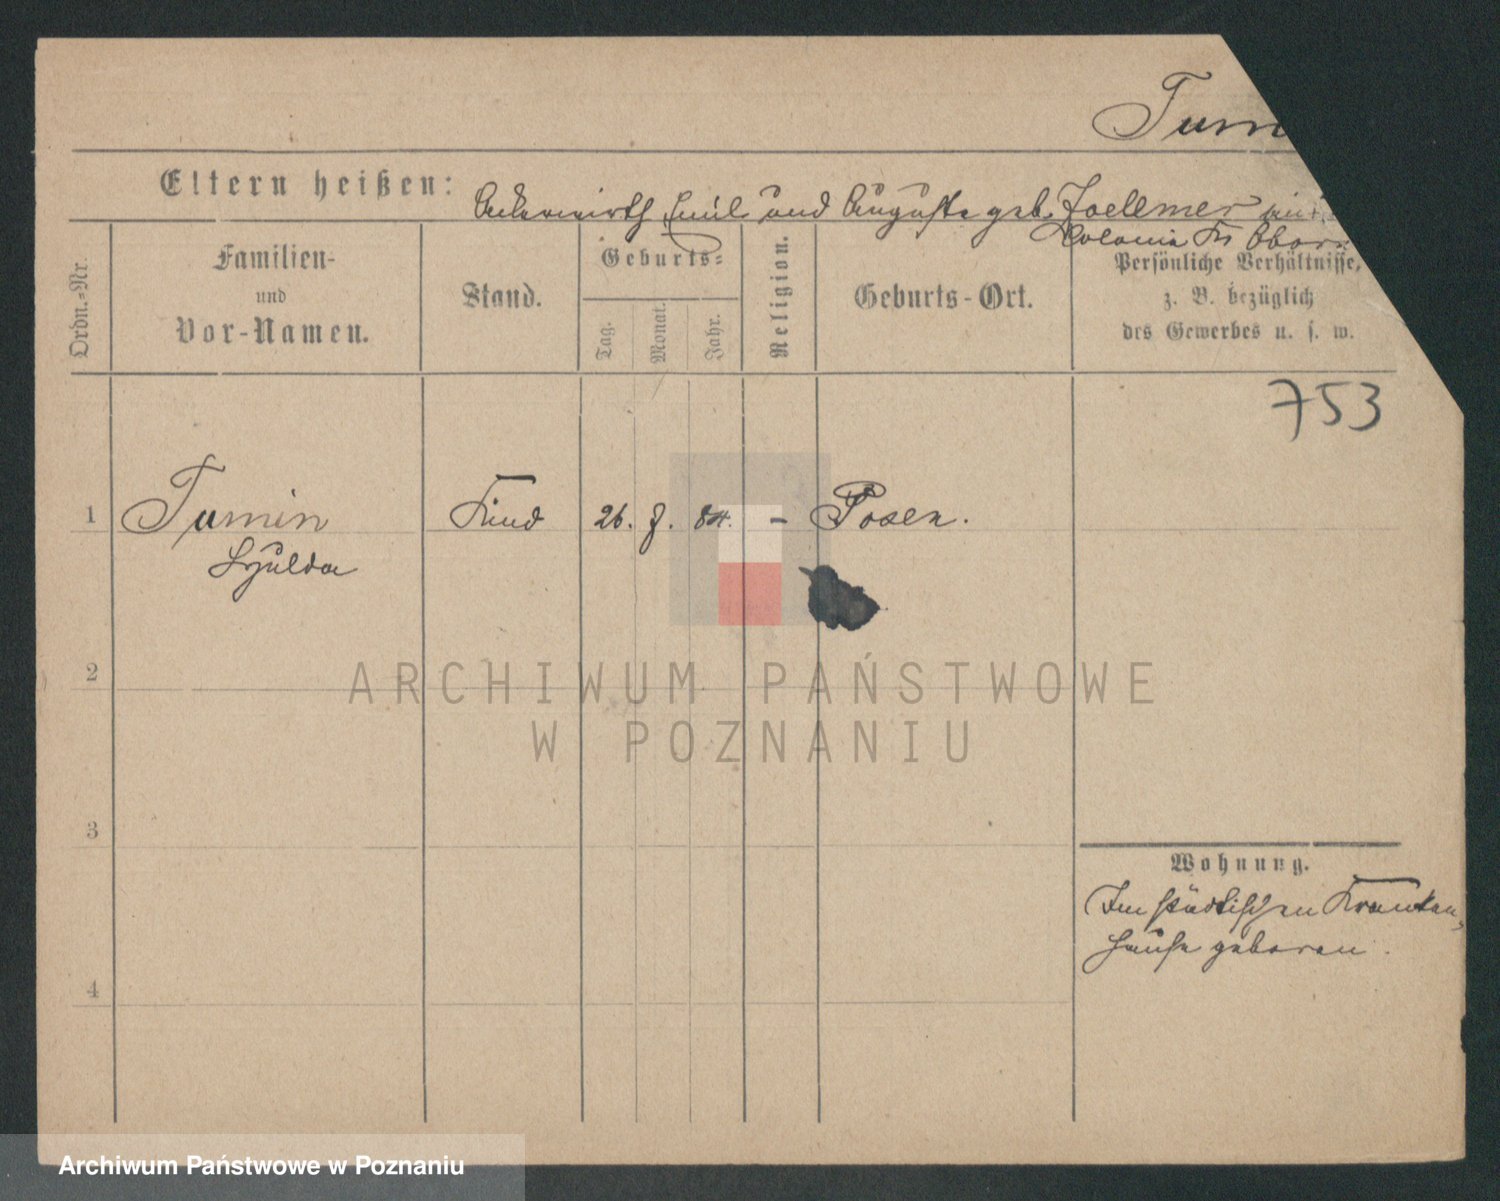 Tumi
Eltern heißen: Ackerwirth Emil und Auguste geb. Zoellmer
Colonie Kr. Obor
Ordn.-Nr.
Familien-
und
Vor-Namen.
Stand.
Geburts-
Tag.
Monat.
Jahr.
Religion.
Geburts-Ort.
Persönliche Verhältnisse,
z. B. bezüglich
des Gewerbes u. s. w.
753
1 Tumin Kind 26. 8. 84. – Posen.
Hulda
2
3
4
Wohnung.
Im städtischen Kranken-
hause geboren.
ARCHIWUM PAŃSTWOWE
W POZNANIU
Archiwum Państwowe w Poznaniu